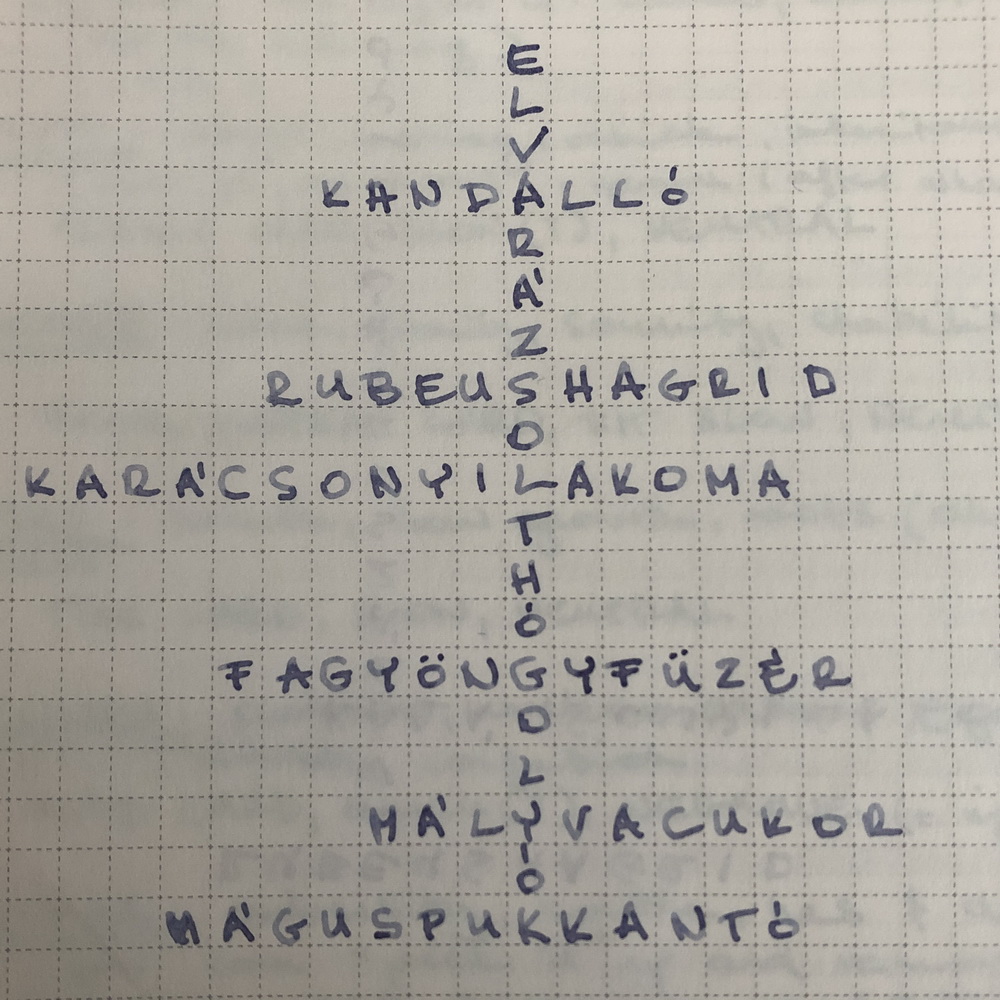 ELVARÁZSOLTHÓGOLYÓK
KANDALLÓ
RUBEUSHAGRID
KARÁCSONYILAKOMA
FAGYÖNGYFÜZÉR
MÁLYVACUKOR
MÁGUSPUKKANTÓ